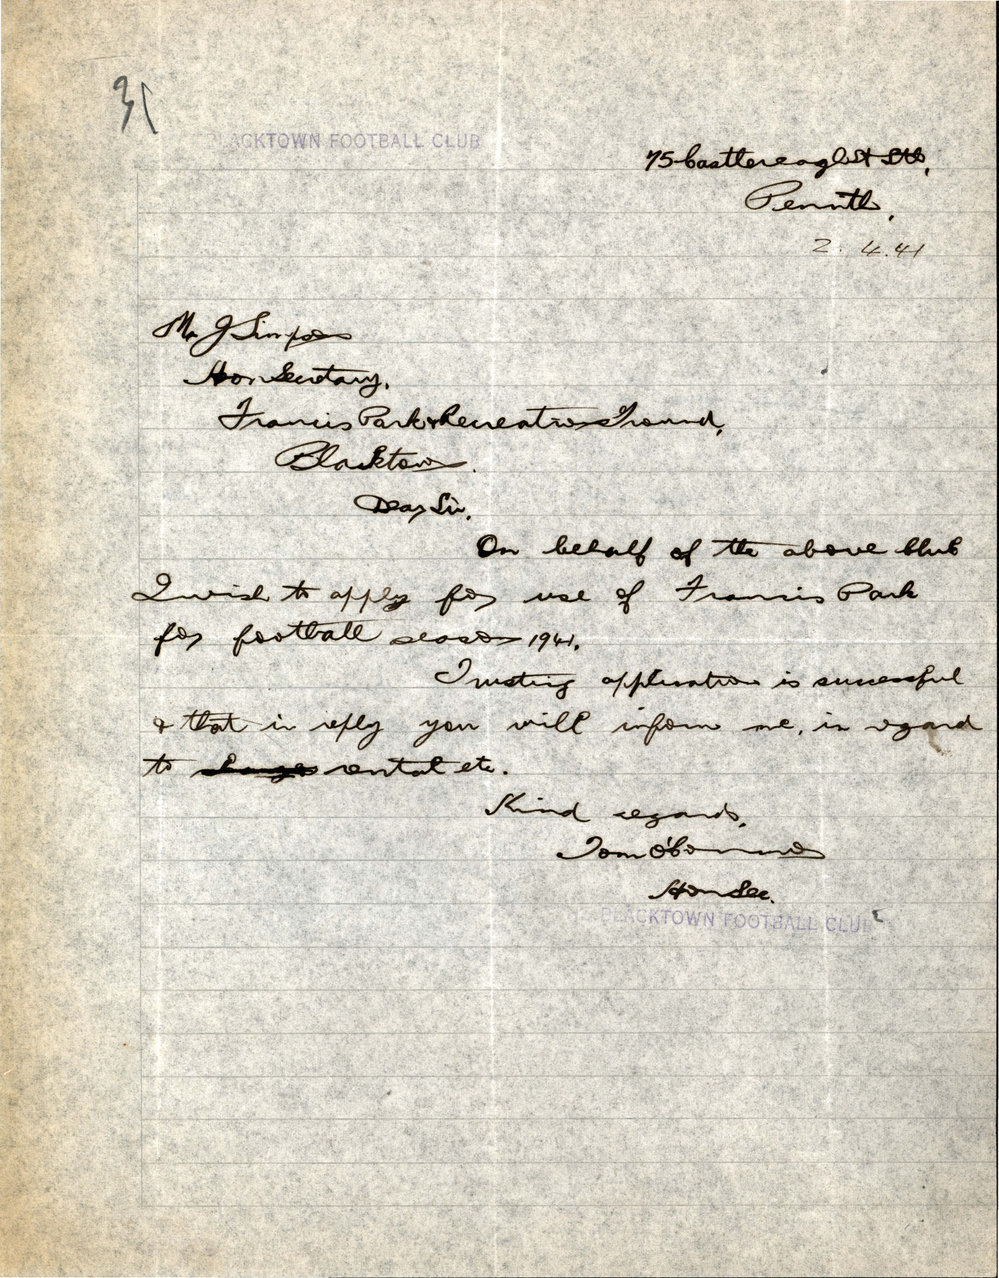 31
BLACKTOWN FOOTBALL CLUB
75 Castlereagh St Sth,
Penrith,
2. 4. 41
Mr J Simpson
Hon Secretary,
Francis Park & Recreation Ground,
Blacktown.
Dear Sir,
On behalf of the above Club
I wish to apply for use of Francis Park
for football season 1941.
Trusting application is successful
& that in reply you will inform me, in regard
to rental etc.
Kind regards,
Tom O'Connor
Hon Sec.
BLACKTOWN FOOTBALL CLUB